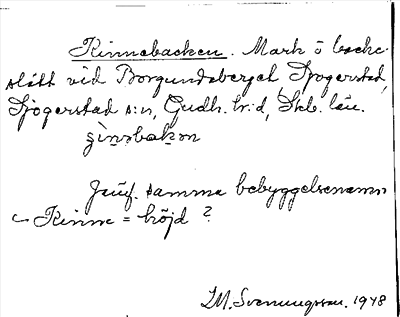 Kinnebacken. Mark o backe-
slätt vid Borgundaberget, Sjogerstad,
Sjogerstad s:n, Gudh. hr:d, Skb. län.
ȿinəbakən
Jämf. samma bebyggelsenamn
Kinne = höjd?
M. Svenungsson. 1948